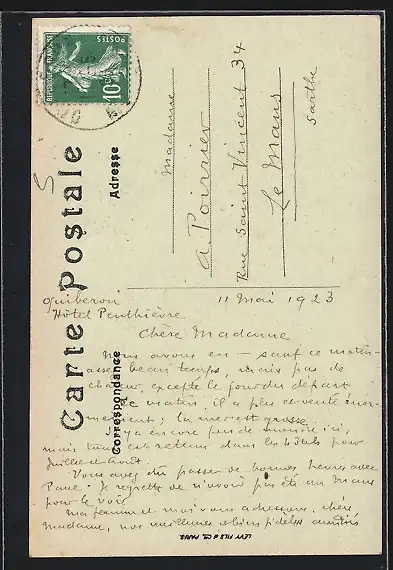 RÉPUBLIQUE FRANÇAISE
POSTES
10c
Carte Postale
Correspondance
Adresse
Madame
A. Poirrier
Rue Saint Vincent 34
Le Mans
Sarthe
Quiberon 11 Mai 1923
Hôtel Penthièvre
Chère Madame
Nous avons eu - sauf ce matin-
assez beau temps, mais pas de
chaleur, excepté le jour du départ
Ce matin, il a plu et venté énor-
mément; la mer est grosse.
Il y a encore peu de monde ici,
mais tout est retenu dans les hôtels pour
juillet et août.
Vous avez dû passer de bonnes heures avec
Paul. Je regrette de n'avoir pas été au Mans
pour le voir.
Ma femme et moi vous adressons, chère
Madame, nos meilleures et bien fidèles amitiés
LÉVY FILS & Cie PARIS